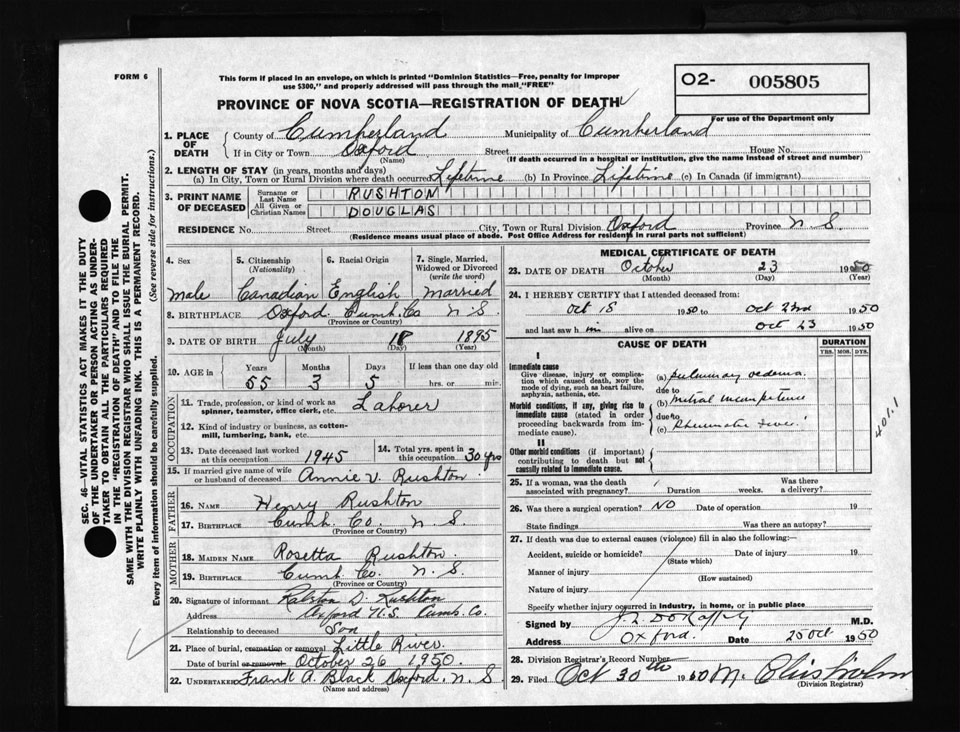 FORM 6
This form if placed in an envelope, on which is printed "Dominion Statistics—Free, penalty for improper
use $300," and properly addressed will pass through the mail "FREE"
O2- 005805
PROVINCE OF NOVA SCOTIA—REGISTRATION OF DEATH
For use of the Department only
SEC. 46—VITAL STATISTICS ACT MAKES IT THE DUTY
OF THE UNDERTAKER OR PERSON ACTING AS UNDER-
TAKER TO OBTAIN ALL THE PARTICULARS REQUIRED
IN THE "REGISTRATION OF DEATH" AND TO FILE THE
SAME WITH THE DIVISION REGISTRAR WHO SHALL ISSUE THE BURIAL PERMIT.
WRITE PLAINLY WITH UNFADING INK. THIS IS A PERMANENT RECORD.
Every item of information should be carefully supplied. (See reverse side for instructions.)
1. PLACE OF DEATH County of Cumberland Municipality of Cumberland
If in City or Town Oxford Street House No.
(Name) (If death occurred in a hospital or institution, give the name instead of street and number)
2. LENGTH OF STAY (in years, months and days)
(a) In City, Town or Rural Division where death occurred Lifetime (b) In Province Lifetime (c) In Canada (if immigrant)
3. PRINT NAME OF DECEASED Surname or Last Name RUSHTON
All Given or Christian Names DOUGLAS
RESIDENCE No. Street City, Town or Rural Division Oxford Province N S.
(Residence means usual place of abode. Post Office Address for residents in rural parts not sufficient)
4. Sex 5. Citizenship (Nationality) 6. Racial Origin 7. Single, Married, Widowed or Divorced (write the word)
Male Canadian English Married
8. BIRTHPLACE Oxford Cumb. Co N S.
(Province or Country)
9. DATE OF BIRTH July 18 1895
(Month) (Day) (Year)
10. AGE in Years Months Days If less than one day old
55 3 5 hrs. or min.
OCCUPATION
11. Trade, profession, or kind of work as spinner, teamster, office clerk, etc. Laborer
12. Kind of industry or business, as cotton-mill, lumbering, bank, etc.
13. Date deceased last worked at this occupation 1945 14. Total yrs. spent in this occupation 30 yrs
15. If married give name of wife or husband of deceased Annie V. Rushton
FATHER
16. NAME Henry Rushton
17. BIRTHPLACE Cumb. Co. N. S.
(Province or Country)
MOTHER
18. MAIDEN NAME Rosetta Rushton.
19. BIRTHPLACE Cumb. Co. N. S.
(Province or Country)
20. Signature of informant Ralston D. Rushton
Address Oxford N.S. Cumb. Co.
Relationship to deceased Son
21. Place of burial, cremation or removal Little River
Date of burial or removal October 26 1950.
22. UNDERTAKER Frank A. Black Oxford, N. S
(Name and address)
MEDICAL CERTIFICATE OF DEATH
23. DATE OF DEATH October 23 1950
(Month) (Day) (Year)
24. I HEREBY CERTIFY that I attended deceased from:
Oct 18 1950 to Oct 23rd 1950
and last saw h im alive on Oct 23 1950
CAUSE OF DEATH DURATION
YRS. MOS. DYS.
I
Immediate cause
Give disease, injury or complication which caused death, NOT the mode of dying, such as heart failure, asphyxia, asthenia, etc.
(a) pulmonary oedema
due to
Morbid conditions, if any, giving rise to immediate cause (stated in order proceeding backwards from immediate cause).
(b) mitral incompetence
due to
(c) Rheumatic fever
401.1
II
Other morbid conditions (if important) contributing to death but not causally related to immediate cause.
25. If a woman, was the death associated with pregnancy? Duration weeks. Was there a delivery?
26. Was there a surgical operation? NO Date of operation 19
State findings Was there an autopsy?
27. If death was due to external causes (violence) fill in also the following:—
Accident, suicide or homicide? Date of injury 19
(State which)
Manner of injury
(How sustained)
Nature of injury
Specify whether injury occurred in industry, in home, or in public place
Signed by M.D.
Address Oxford. Date 25 Oct 1950
28. Division Registrar's Record Number
29. Filed Oct 30th 1950 M. Chisholm
(Division Registrar)